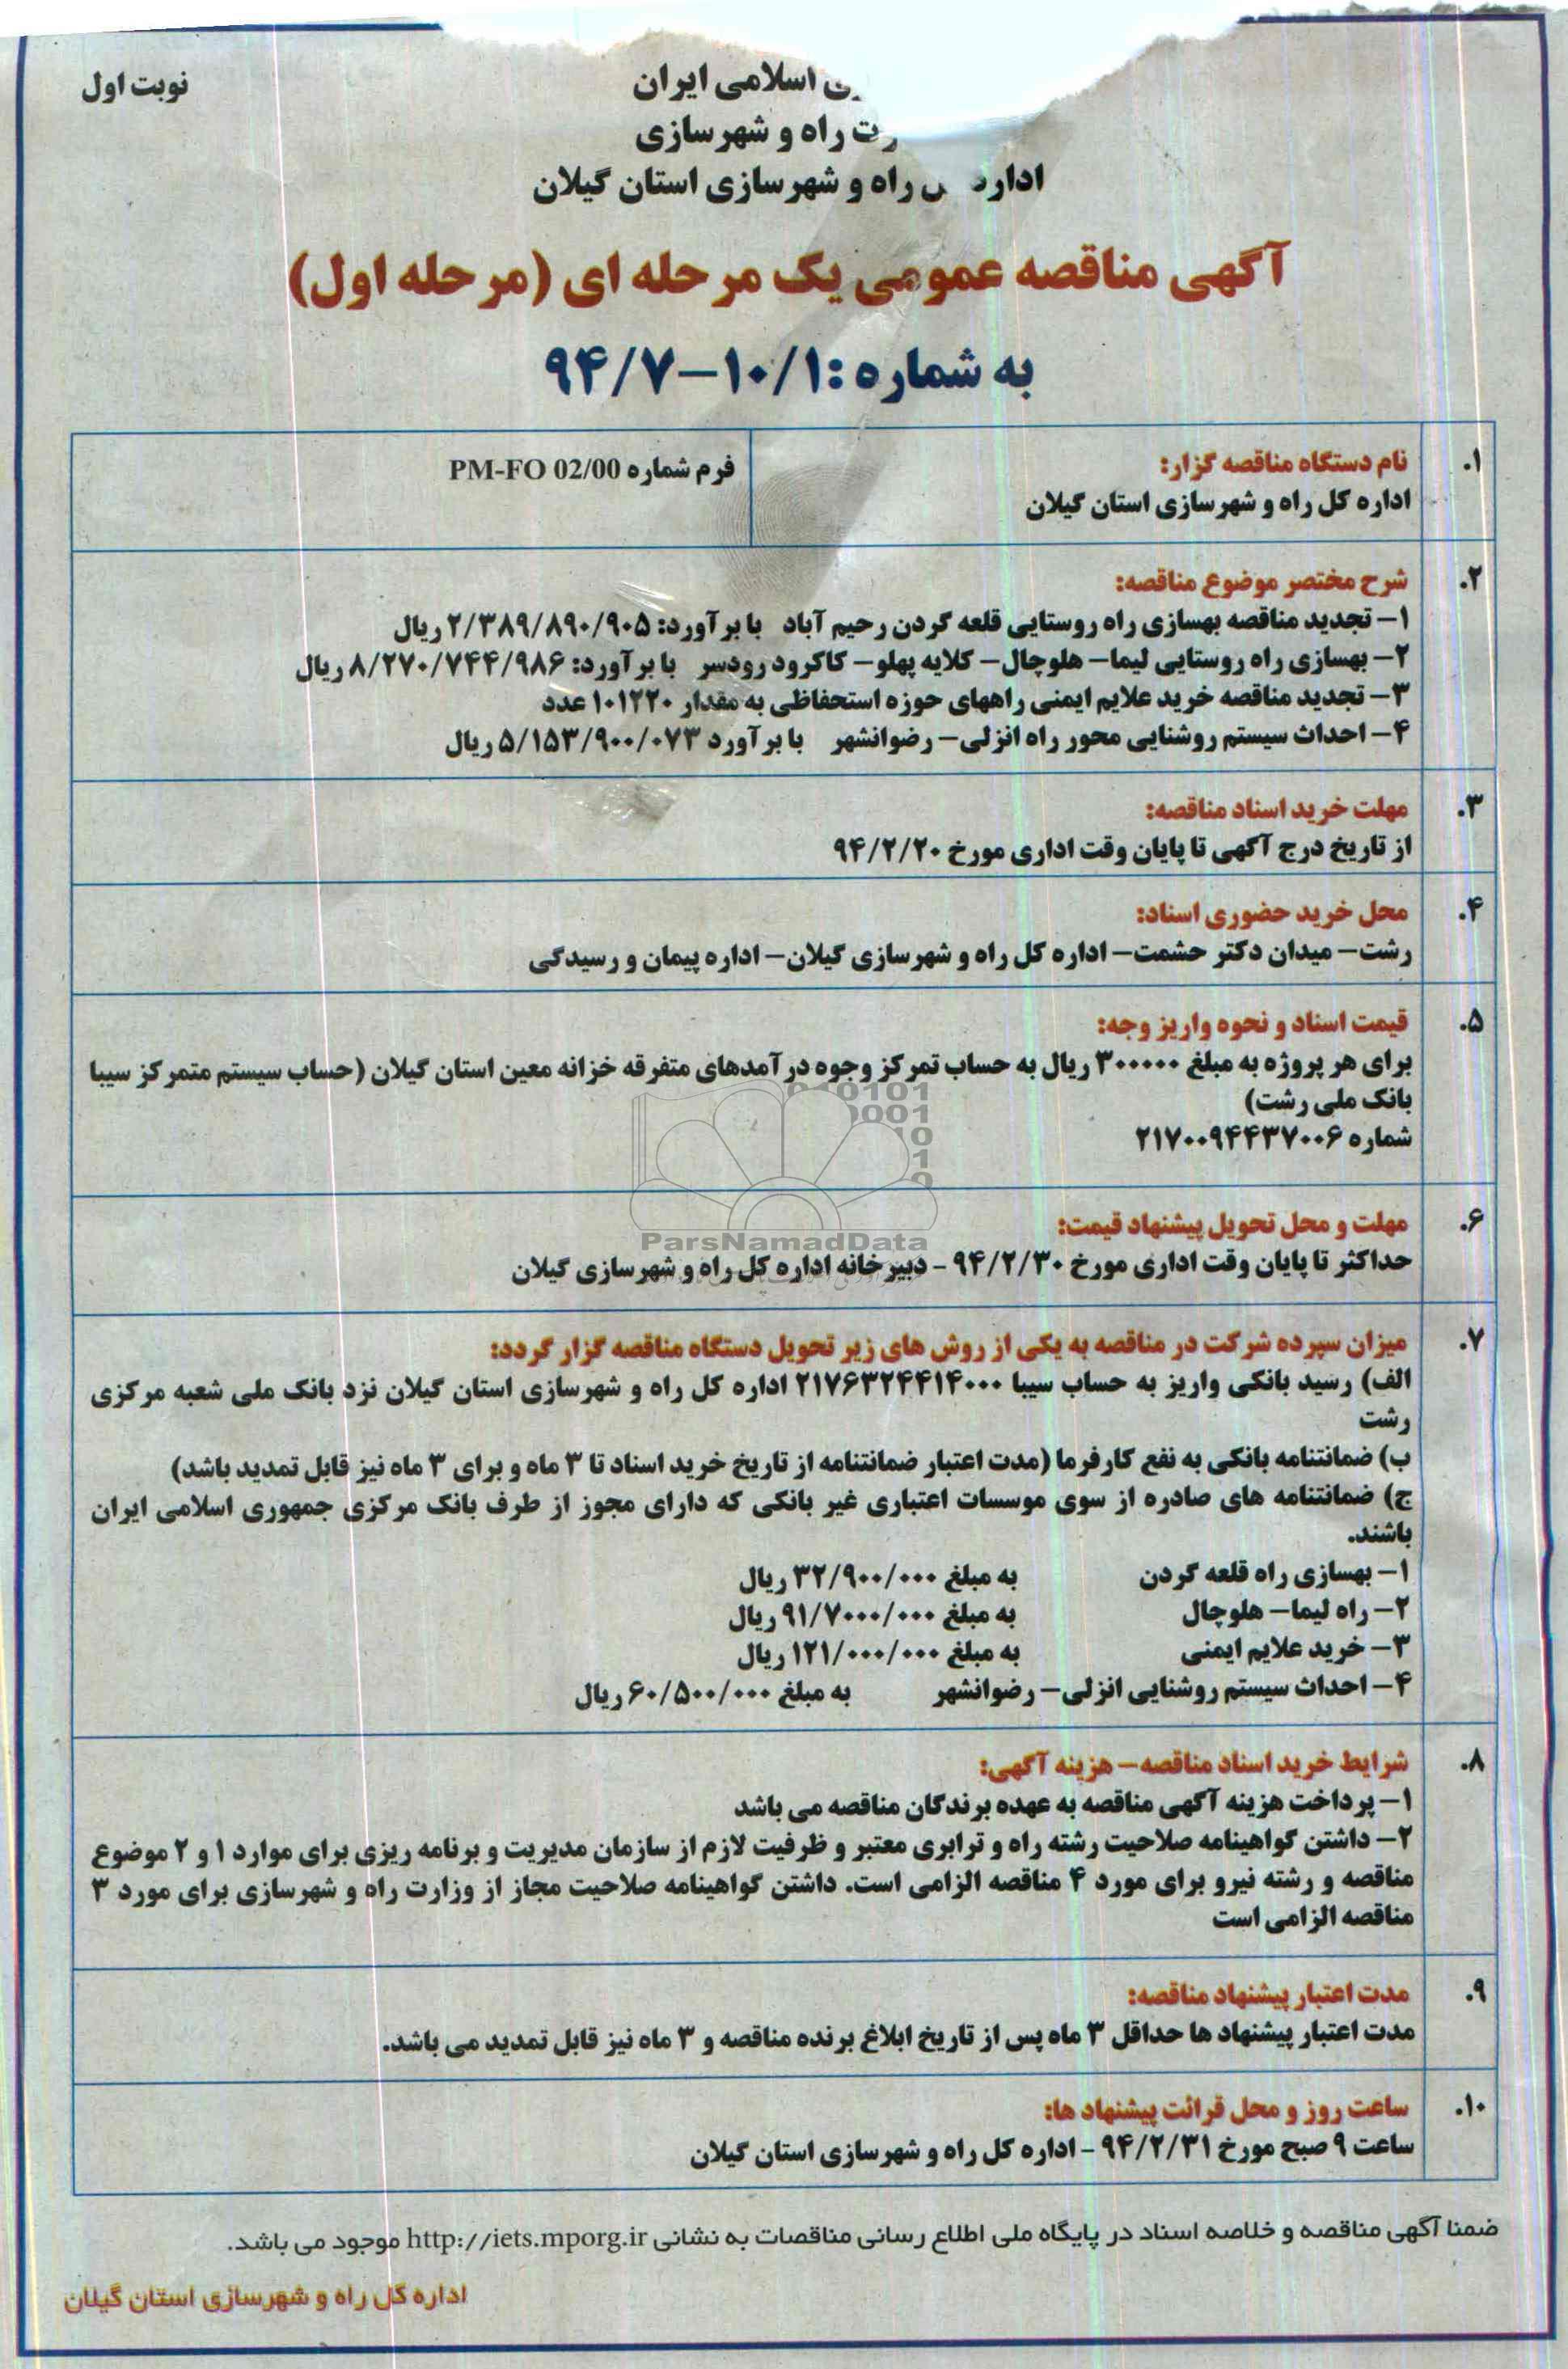 نوبت اول
اسلامی ایران
راه و شهرسازی
راه و شهرسازی استان گیلان
آگهی مناقصه عمومی یک مرحله ای (مرحله اول)
به شماره :۱۰/۱-۹۴/۷
۱.
نام دستگاه مناقصه گزار:
اداره کل راه و شهرسازی استان گیلان
فرم شماره PM-FO 02/00
۲.
شرح مختصر موضوع مناقصه:
۱- تجدید مناقصه بهسازی راه روستایی قلعه گردن رحیم آباد با برآورد: ۲/۳۸۹/۸۹۰/۹۰۵ ریال
۲- بهسازی راه روستایی لیما- هلوچال- کلایه پهلو- کاکرود رودسر با برآورد: ۸/۲۷۰/۷۴۴/۹۸۶ ریال
۳- تجدید مناقصه خرید علایم ایمنی راههای حوزه استحفاظی به مقدار ۱۰۱۲۲۰ عدد
۴- احداث سیستم روشنایی محور راه انزلی- رضوانشهر با برآورد ۵/۱۵۳/۹۰۰/۰۷۳ ریال
۳.
مهلت خرید اسناد مناقصه:
از تاریخ درج آگهی تا پایان وقت اداری مورخ ۹۴/۲/۲۰
۴.
محل خرید حضوری اسناد:
رشت- میدان دکتر حشمت- اداره کل راه و شهرسازی گیلان- اداره پیمان و رسیدگی
۵.
قیمت اسناد و نحوه واریز وجه:
برای هر پروژه به مبلغ ۳۰۰۰۰۰ ریال به حساب تمرکز وجوه درآمدهای متفرقه خزانه معین استان گیلان (حساب سیستم متمرکز سیبا
بانک ملی رشت)
شماره ۲۱۷۰۰۹۴۴۳۷۰۰۶
ParsNamadData
۶.
مهلت و محل تحویل پیشنهاد قیمت:
حداکثر تا پایان وقت اداری مورخ ۹۴/۲/۳۰ - دبیرخانه اداره کل راه و شهرسازی گیلان
۷.
میزان سپرده شرکت در مناقصه به یکی از روش های زیر تحویل دستگاه مناقصه گزار گردد:
الف) رسید بانکی واریز به حساب سیبا ۲۱۷۶۳۲۴۴۱۴۰۰۰ اداره کل راه و شهرسازی استان گیلان نزد بانک ملی شعبه مرکزی
رشت
ب) ضمانتنامه بانکی به نفع کارفرما (مدت اعتبار ضمانتنامه از تاریخ خرید اسناد تا ۳ ماه و برای ۳ ماه نیز قابل تمدید باشد)
ج) ضمانتنامه های صادره از سوی موسسات اعتباری غیر بانکی که دارای مجوز از طرف بانک مرکزی جمهوری اسلامی ایران
باشند.
۱- بهسازی راه قلعه گردن به مبلغ ۳۲/۹۰۰/۰۰۰ ریال
۲- راه لیما- هلوچال به مبلغ ۹۱/۷۰۰۰/۰۰۰ ریال
۳- خرید علایم ایمنی به مبلغ ۱۲۱/۰۰۰/۰۰۰ ریال
۴- احداث سیستم روشنایی انزلی- رضوانشهر به مبلغ ۶۰/۵۰۰/۰۰۰ ریال
۸.
شرایط خرید اسناد مناقصه- هزینه آگهی:
۱- پرداخت هزینه آگهی مناقصه به عهده برندگان مناقصه می باشد
۲- داشتن گواهینامه صلاحیت رشته راه و ترابری معتبر و ظرفیت لازم از سازمان مدیریت و برنامه ریزی برای موارد ۱ و ۲ موضوع
مناقصه و رشته نیرو برای مورد ۴ مناقصه الزامی است. داشتن گواهینامه صلاحیت مجاز از وزارت راه و شهرسازی برای مورد ۳
مناقصه الزامی است
۹.
مدت اعتبار پیشنهاد مناقصه:
مدت اعتبار پیشنهاد ها حداقل ۳ ماه پس از تاریخ ابلاغ برنده مناقصه و ۳ ماه نیز قابل تمدید می باشد.
۱۰.
ساعت روز و محل قرائت پیشنهاد ها:
ساعت ۹ صبح مورخ ۹۴/۲/۳۱ - اداره کل راه و شهرسازی استان گیلان
ضمنا آگهی مناقصه و خلاصه اسناد در پایگاه ملی اطلاع رسانی مناقصات به نشانی http://iets.mporg.ir موجود می باشد.
اداره کل راه و شهرسازی استان گیلان